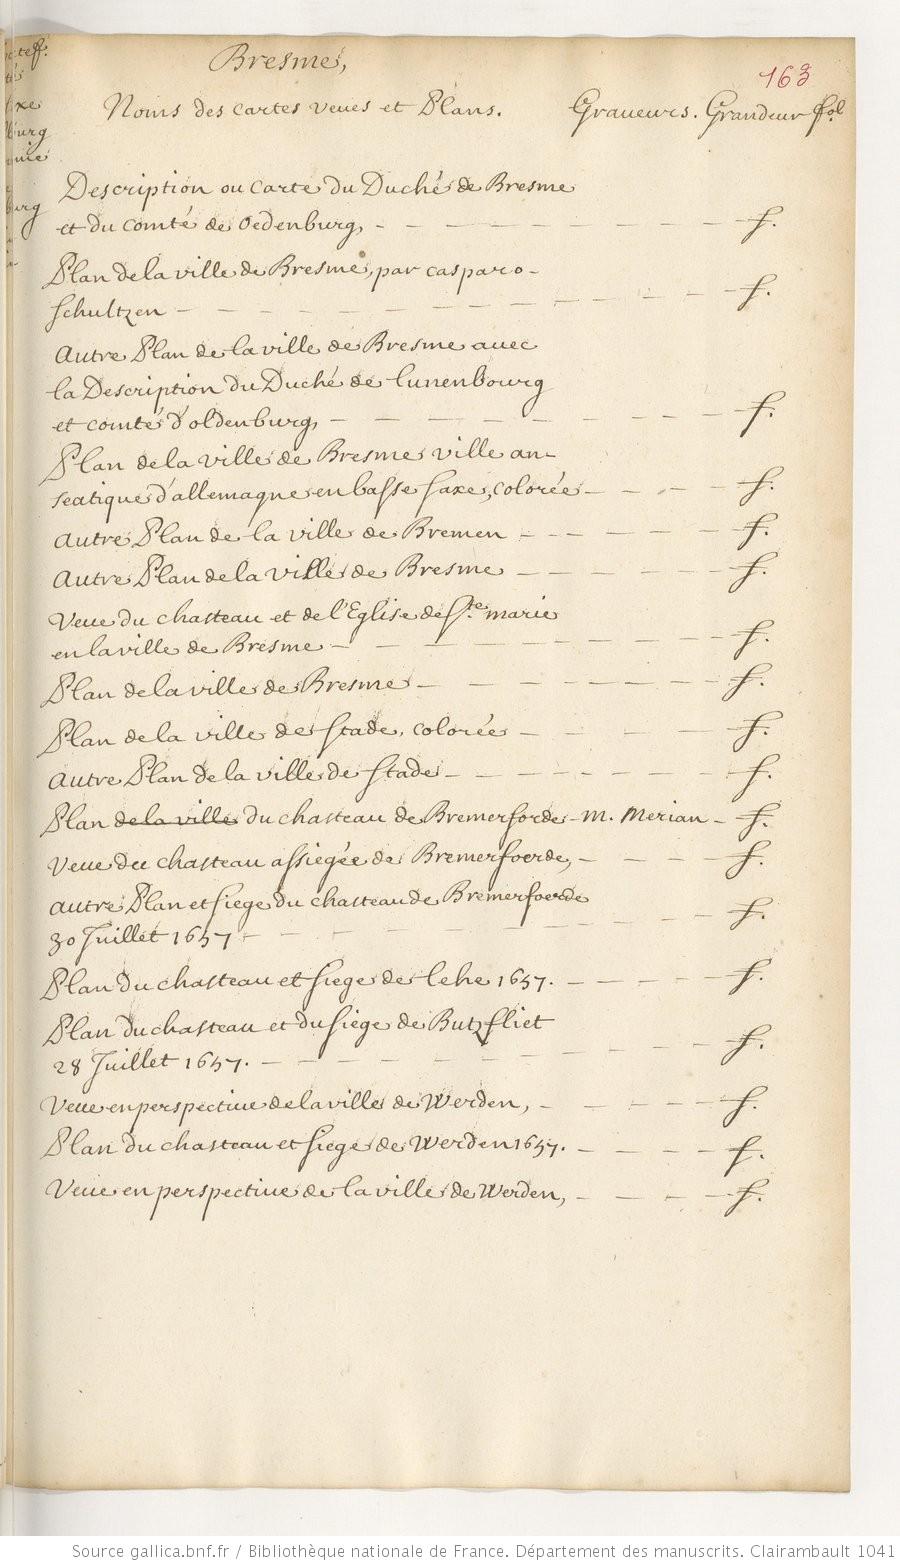 Bresme,
163
Noms des cartes veues et Plans. Graveurs. Grandeur fol
Description ou carte du Duché de Bresme
et du comté de Oedenburg, - - - - - - - - - f.
Plan de la ville de Bresme, par casparo-
Schultzen - - - - - - - - - - f.
autre Plan de la ville de Bresme avec
la Description du Duché de lunenbourg
et comté d'oldenburg, - - - - - - - - f.
Plan de la ville de Bresme ville an-
seatique d'allemagne en basse saxe, colorée - - - - f.
autre Plan de la ville de Bremen - - - - - - f.
autre Plan de la ville de Bresme - - - - - f.
Veue du chasteau et de l'Eglise de Ste. marie
en la ville de Bresme - - - - - - - - f.
Plan de la ville de Bresme - - - - - - - f.
Plan de la ville de Stade, colorée - - - - - f.
autre Plan de la ville de Stade - - - - - - - f.
Plan de la ville du chasteau de Bremerforde - M. Merian - f.
Veue du chasteau assiegée de Bremerfoerde, - - - - f.
autre Plan et siege du chasteau de Bremerfoerde
30 Juillet 1657 - - - - - - - - - f.
Plan du chasteau et siege de lehe 1657. - - - - - f.
Plan du chasteau et du siège de Butzfliet
28 Juillet 1657. - - - - - - - - - f.
Veue en perspective de la ville de Werden, - - - - - f.
Plan du chasteau et siege de Werden 1657. - - - - f.
Veue en perspective de la ville de Werden, - - - - f.
Source gallica.bnf.fr / Bibliothèque nationale de France. Département des manuscrits. Clairambault 1041